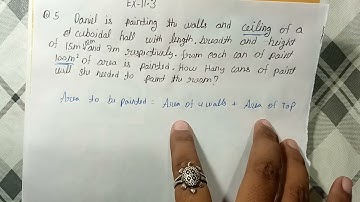 Ex-11.3
Q 5 Daniel is painting the walls and ceiling of a
cuboidal hall with length, breadth and height
of 15m, 10m and 7m respectively. from each can of paint
100m² of area is painted. How many cans of paint
will she needed to paint the room?
Area to be painted = Area of 4 walls + Area of Top